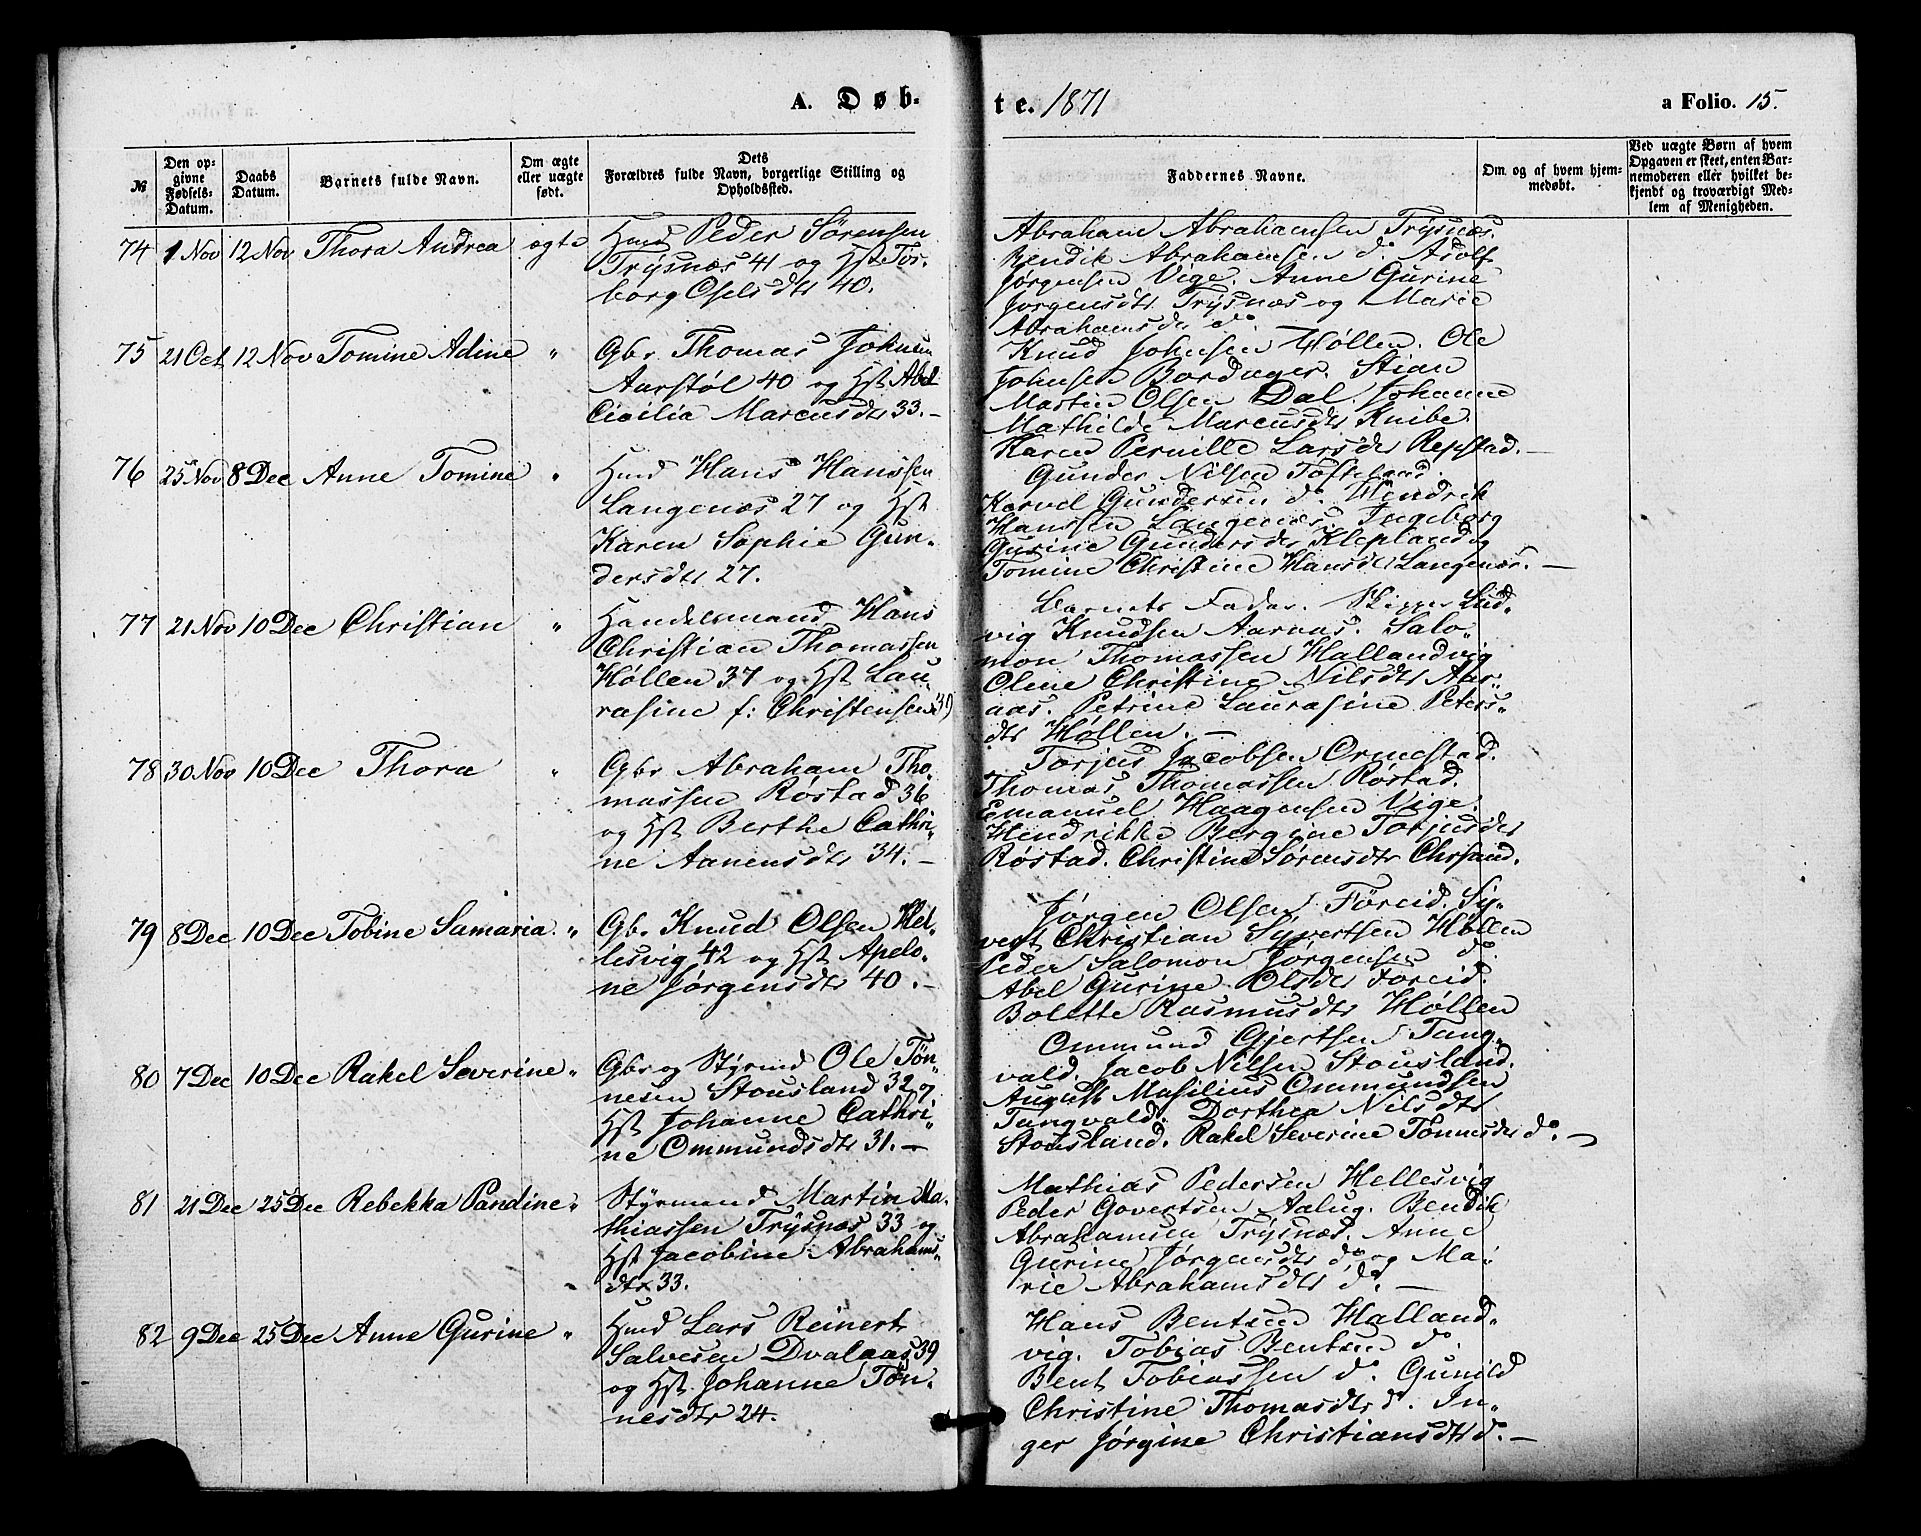 A. Døb-
te. 1871
a Folio. 15.
№
Den op-
givne
Fødsels-
Datum.
Daabs
Datum.
Barnets fulde Navn.
Om ægte
eller uægte
født.
Dets
Forældres fulde Navn, borgerlige Stilling og
Opholdssted.
Faddernes Navne.
Om og af hvem hjem-
medøbt.
Ved uægte Børn af hvem
Opgaven er skeet, enten Bar-
nemoderen eller hvilket be-
kjendt og troværdigt Med-
lem af Menigheden.
74 1 Nov 12 Nov Thora Andrea ægte
Hmd Peder Sörensen
Trysnæs 41 og Hst Tor-
borg Oselsdtr 40.
Abraham Abrahamsen Trysnæs.
Bendik Abrahamsen do. Adolf
Jørgensen Vige. Anne Gurine
Jorgensdtr Trysnæs og Marie
Abrahamsdtr do.
75 21 Oct 12 Nov Tomine Adine "
Gbr Thomas Johnsen
Aarstøl 40 og Hst Abel
Cicilia Marcusdtr 33.-
Knud Johnsen Høllen. Ole
Johnsen Bordager. Stian
Martin Olsen Dal. Johanne
Mathilde Marcusdtr Knibe.
Karen Pernille Larsdtr Repstad.-
76 25 Nov 8 Dec Anne Tomine "
Hmd Hans Hanssen
Langenæs 27 og Hst
Karen Sophie Gun-
dersdtr 27.
Gunder Nilsen Tofteland.
Korvel Gundersen do. Hendrik
Hanssen Langenæs. Ingeborg
Gurine Gundersdtr Klepland og
Tomine Christine Hansdtr Langenæs.-
77 21 Nov 10 Dec Christian "
Handelsmand Hans
Christian Thomassen
Høllen 37 og Hst Lau-
rasine f: Christensen 39
Barnets Fader. Skipper Lud-
vig Knudsen Aaraas. Salo-
mon Thomassen Hallandvig
Oline Christine Nilsdtr Aar-
aas. Petrine Laurasine Peters-
dtr Høllen.-
78 30 Nov 10 Dec Thora "
Gbr Abraham Tho-
massen Røstad 36
og Hst Berthe Cathri-
ne Aanensdtr 34.-
Torjus Jacobsen Ormestad.
Thomas Thomassen Røstad.
Emanuel Haagensen Vige.
Hendrikke Bergine Torjusdtr
Røstad. Christine Sørensdtr Chrsand.
79 8 Dec 10 Dec Tobine Samaria. "
Gbr Knud Olsen Hel-
lesvig 42 og Hst Apelo-
ne Jørgensdtr 40.-
Jørgen Olsen Föreid. Sy-
vert Christian Syvertsen Høllen
Peder Salomon Jørgensen do.
Abel Gurine Olsdtr Foreid.
Bolette Rasmusdtr Høllen
80 7 Dec 10 Dec Rakel Severine "
Gbr og Styrmd Ole Tön-
nesen Stousland 32 og
Hst Johanne Cathri-
ne Ommundsdtr 31.-
Ommund Gjertsen Tang-
vald. Jacob Nilsen Stousland.
August Masilius Ommundsen
Tangvald. Dorthea Nilsdtr
Stousland. Rakel Severine Tönnesdtr do.-
81 21 Dec 25 Dec Rebekka Pandine "
Styrmand Martin Ma-
thiassen Trysnæs 33 og
Hst Jacobine Abrahams-
dtr 33.
Mathias Pedersen Hellesvig
Peder Govertsen Aalug. Bendik
Abrahamsen Trysnæs. Anne
Gurine Jørgensdtr do og Ma-
rie Abrahamsdtr do.-
82 9 Dec 25 Dec Anne Gurine "
Hmd Lars Reinert
Salvesen Dvalaas 39
og Hst Johanne Tön-
nesdtr 24.
Hans Bentsen Halland-
vig. Tobias Bentsen do.
Bent Tobiassen do. Gunild
Christine Thomasdtr do. In-
ger Jørgine Christiansdtr do.-